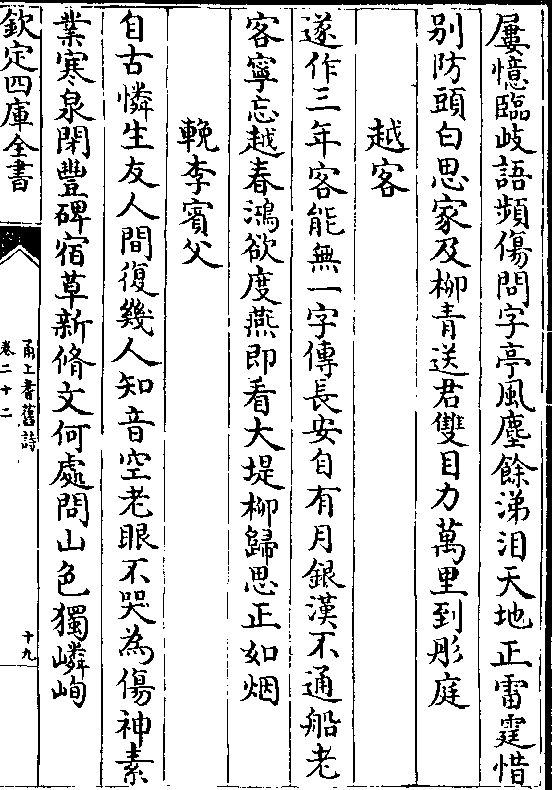 屢憶臨歧語頻傷問字亭風塵餘涕泪天地正雷霆惜
别防頭白思家及柳青送君雙目力萬里到彤庭
越客
遂作三年客能無一字傳長安自有月銀漢不通船老
客寧忘越春鴻欲度燕即看大堤柳歸思正如烟
輓李賓父
自古憐生友人間復幾人知音空老眼不哭為傷神素
業寒泉閉豐碑宿草新脩文何處問山色獨嶙峋
欽定四庫全書
甬上耆舊詩
卷二十二
十九